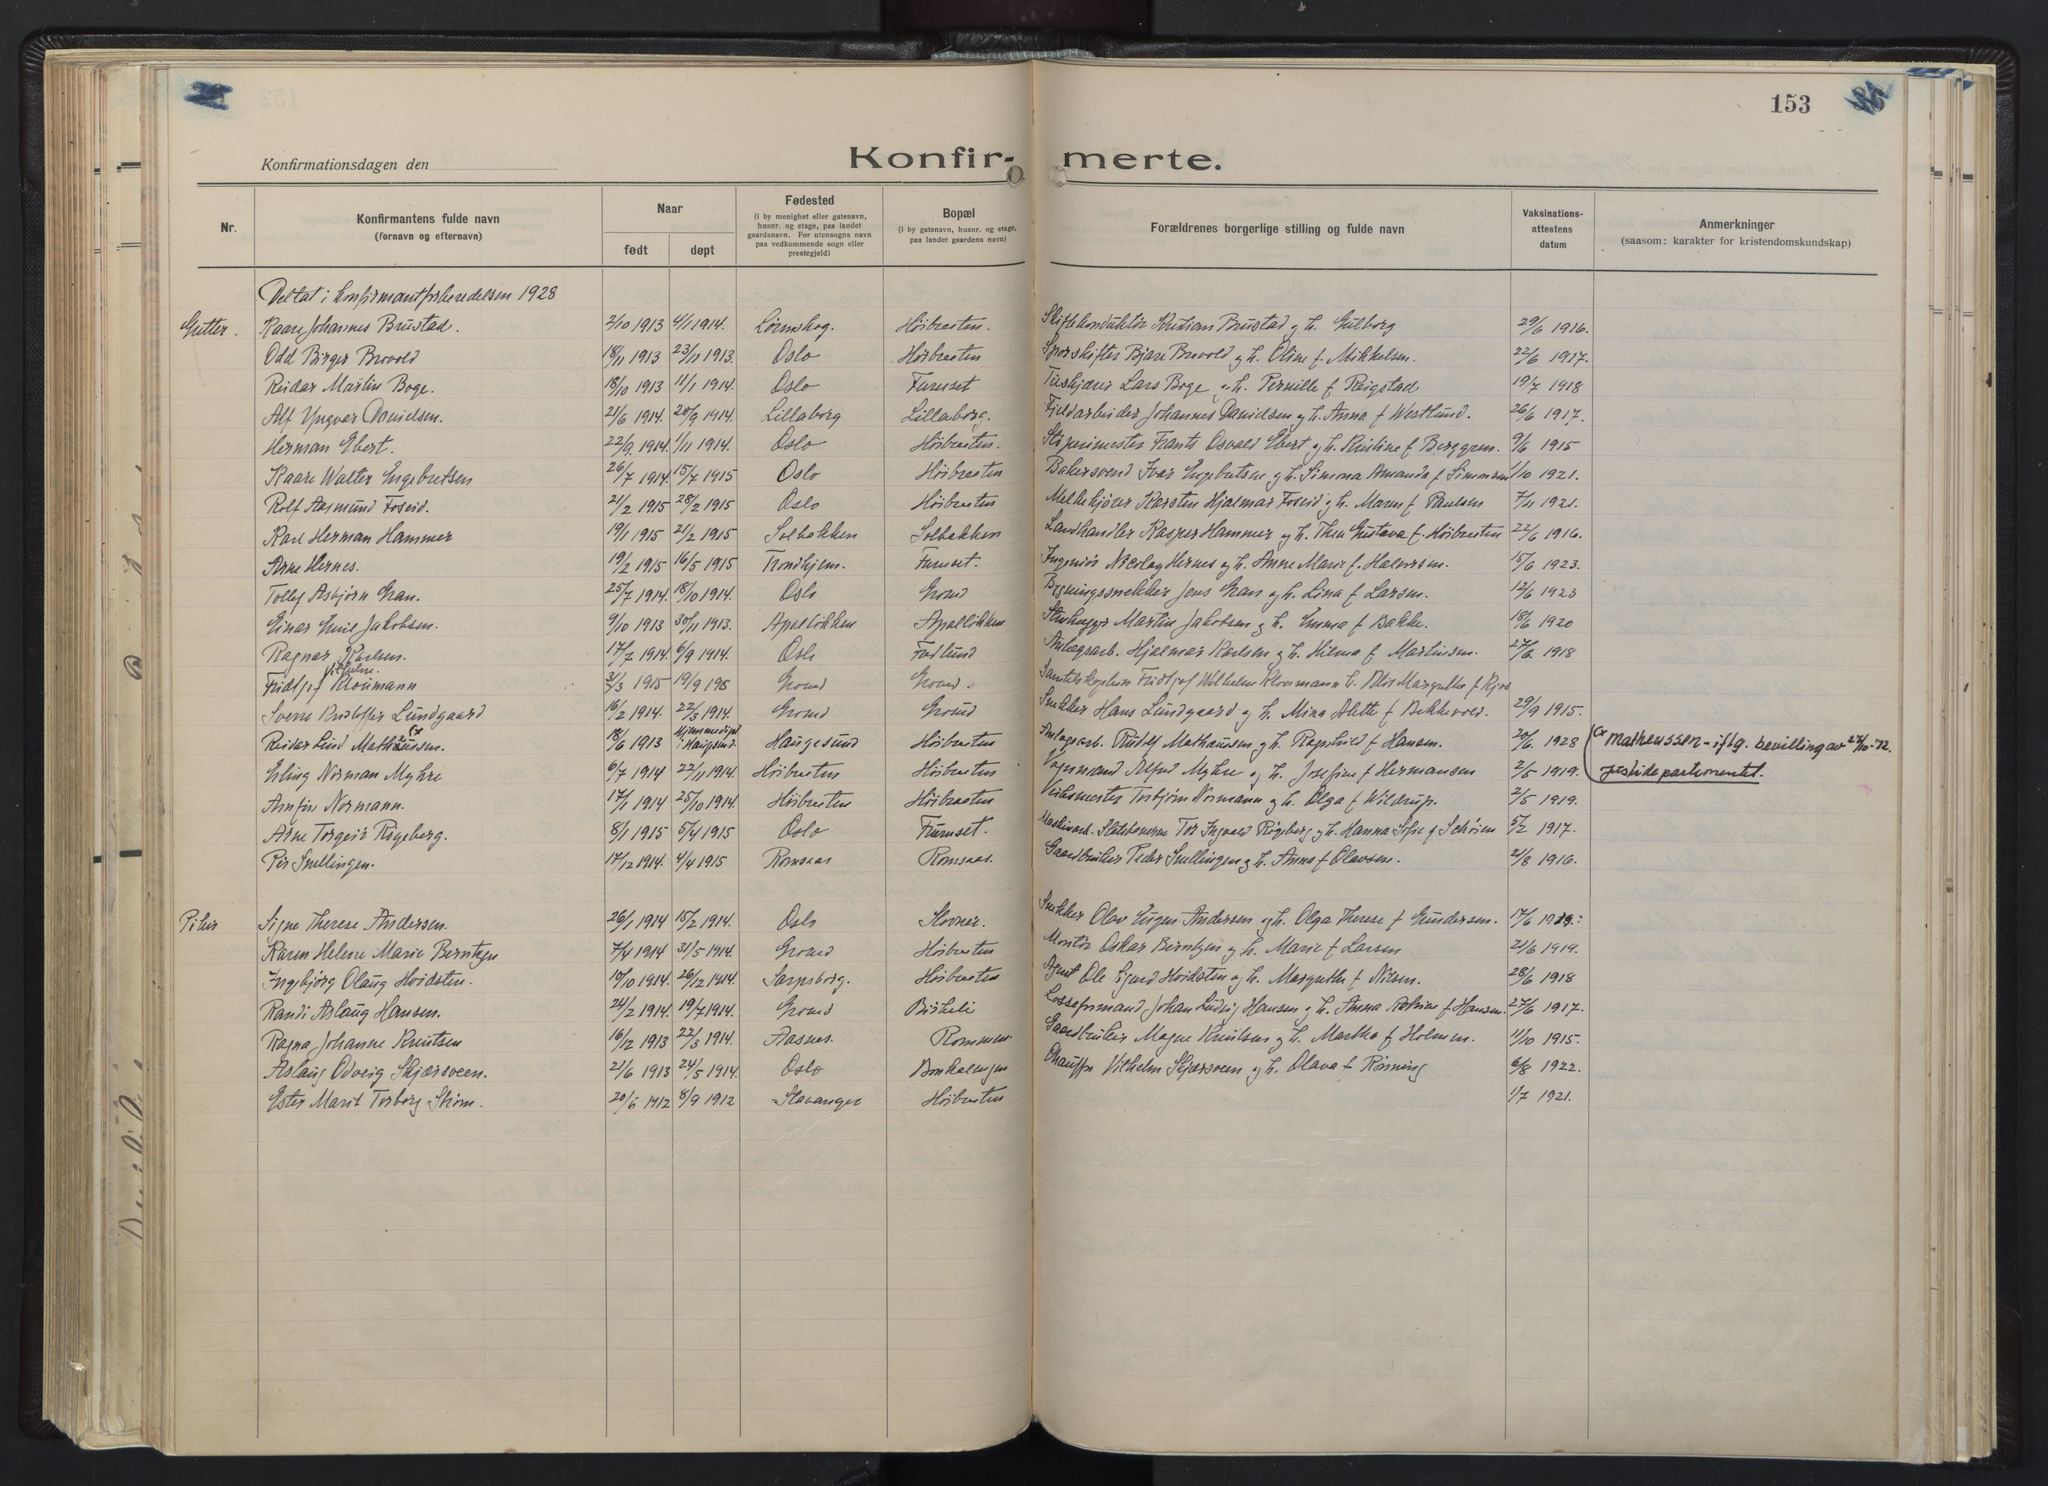 153
Konfirmationsdagen den
Konfir- merte.
Nr.
Konfirmantens fulde navn
(fornavn og efternavn)
Naar
født
døpt
Fødested
(i by menighet eller gatenavn, husnr. og etage, paa landet gaardsnavn. For utensogns navn paa vedkommende sogn eller prestegjeld)
Bopæl
(i by gatenavn, husnr. og etage, paa landet gaardens navn)
Forældrenes borgerlige stilling og fulde navn
Vaksinations-attestens datum
Anmerkninger
(saasom: karakter for kristendomskundskap)
Deltat i konfirmantforberedelsen 1928
Gutter. Kaare Johannes Brustad. 2/10 1913 4/1 1914. Lørenskog. Høibraaten. Kristian Brustad og h. Gulborg 29/6 1916.
Odd Birger Brovold 18/11 1913 23/11 1913. Oslo Høibraaten Sporskifter Bjare Brovold og h. Oline f. Mikkelsen. 22/6 1917.
Reidar Martin Boge. 18/10 1913 11/1 1914. Oslo Furuset Lars Boge og h. Pernille f Reigstad 19/7 1918
Alf Yngvar Danielsen. 21/6 1914. 20/9 1914. Lillaborg Lillaborg. Johannes Danielsen og h. Anna f Westlund. 26/6 1917.
Herman Ebert. 22/9. 1914. 1/11 1914. Oslo Høibraaten. Frants Osvald Ebert og h. Kristine f Berggren. 9/6 1915
Kaare Walter Engebretsen 26/7 1914. 15/7 1915 Oslo Høibraaten Bakersvend Ivar Engebretsen og h. Simona Amanda f Simonsen 1/10 1921.
Rolf Aasmund Foseid. 21/2 1915 28/2 1915 Oslo Høibraaten Melkekjører Karsten Hjalmar Foseid og h. Maren f Paulsen 7/11 1921.
Karl Herman Hammer 19/1 1915 21/2 1915 Solbakken Solbakken Landhandler Kasper Hammer og h. Thea Gustava f. Høibraaten 22/6 1916.
Arne Hernes. 19/2 1915 16/5 1915 Trondhjem. Furuset. Ingeniør Nicolay Hernes og h. Anne Marie f. Halvorsen. 15/6 1923.
Tollef Asbjørn Gran. 25/7 1914. 18/10 1914. Oslo Grorud Bygningssnekker Jens Gran og h. Lina f Larsen. 12/6 1923
Einar Emil Jakobsen. 9/10 1913 30/11 1913. Apalløkken Apalløkken Stenhugger Martin Jakobsen og h. Emma f Bakke. 18/6 1920
Ragnar Karlsen. 17/7 1914. 6/9 1914. Oslo Anlægsarb. Hjalmar Karlsen og h. Hilma f Martinsen. 27/6. 1918
Vilhelm
Fridtjof Kloumann 3/3 1915 19/9 195 Grorud Grorud. Fridtjof Wilhelm Kloumann h.
Sverre Lundgaard 16/2 1914. 22/3 1914. Grorud Grorud Snekker Hans Lundgaard og h. Mina Alette f Bekkevold. 29/9 1915.
Reidar Lind Mathaussen. 18/6 1913 Hjemmedøpt i Haugesund. Haugesund Høibraaten Anlægsarb. Rudolf Mathaussen og h. Ragnhild f Hansen. 20/6. 1928 Matheussen – iflg. bevilling av 24/10-72.
Justidepartementet.
Erling Norman Myhre 6/7 1914 22/11 1914. Høibraaten Høibraaten Vognmand Alfred Myhre og h. Josefine f Hermansen 2/5 1919.
Arnfin Normann. 17/1 1914 25/10 1914. Høibraaten Høibraaten Torbjørn Normann og h. Olga f Wildrup. 2/5 1919.
Arne Torgeir Rogeberg. 8/1 1915 5/4 1915 Oslo Furuset. Maskinarb. Statsbanerne Tor Ingvald Rogeberg og h. Hanna Sofie f Schøien 5/2 1917.
Per Snellingen. 17/12 1914. 4/4 1915 Romsaas Romsaas. Gaardbruker Peder Snellingen og h. Anna f Olavsen. 2/8 1916.
Piker Signe Therese Andersen. 26/1 1914 15/2 1914. Oslo Stovner. Snekker Olav Eugen Andersen og h. Olga Therese f Gundersen. 17/6 1919.
Karen Helene Marie Berntzen 7/4 1914 31/5 1914. Grorud Høibraaten Montør Oskar Berntzen og h. Marie f Larsen 21/6 1919.
Ingebjørg Olaug Hvidsten. 19/10 1914. 26/12 1914. Sarpsborg. Høibraaten Agent Ole Sjurd Hvidsten og h. Margrethe f Nilsen. 28/6 1918
Randi Aslaug Hansen. 24/2 1914. 19/7 1914. Grorud Birkeli Losseformand Johan Ludvig Hansen og h. Anna f Hansen. 27/6 1917.
Ragna Johanne Knutsen 16/12 1913 22/3 1914. Aasnes. Rommen. Gaardbruker Magne Knutsen og h. Martha f Holmen. 11/10 1915.
Aslaug Odveig Skjærsveen. 21/6 1913 24/5 1914. Oslo Chauffør Vilhelm Skjærsveen og h. Olava f Rønning 6/8 1922.
Ester Marit Torborg Strøm. 20/6 1912 8/9 1912 Stavanger Høibraaten 1/7 1921.